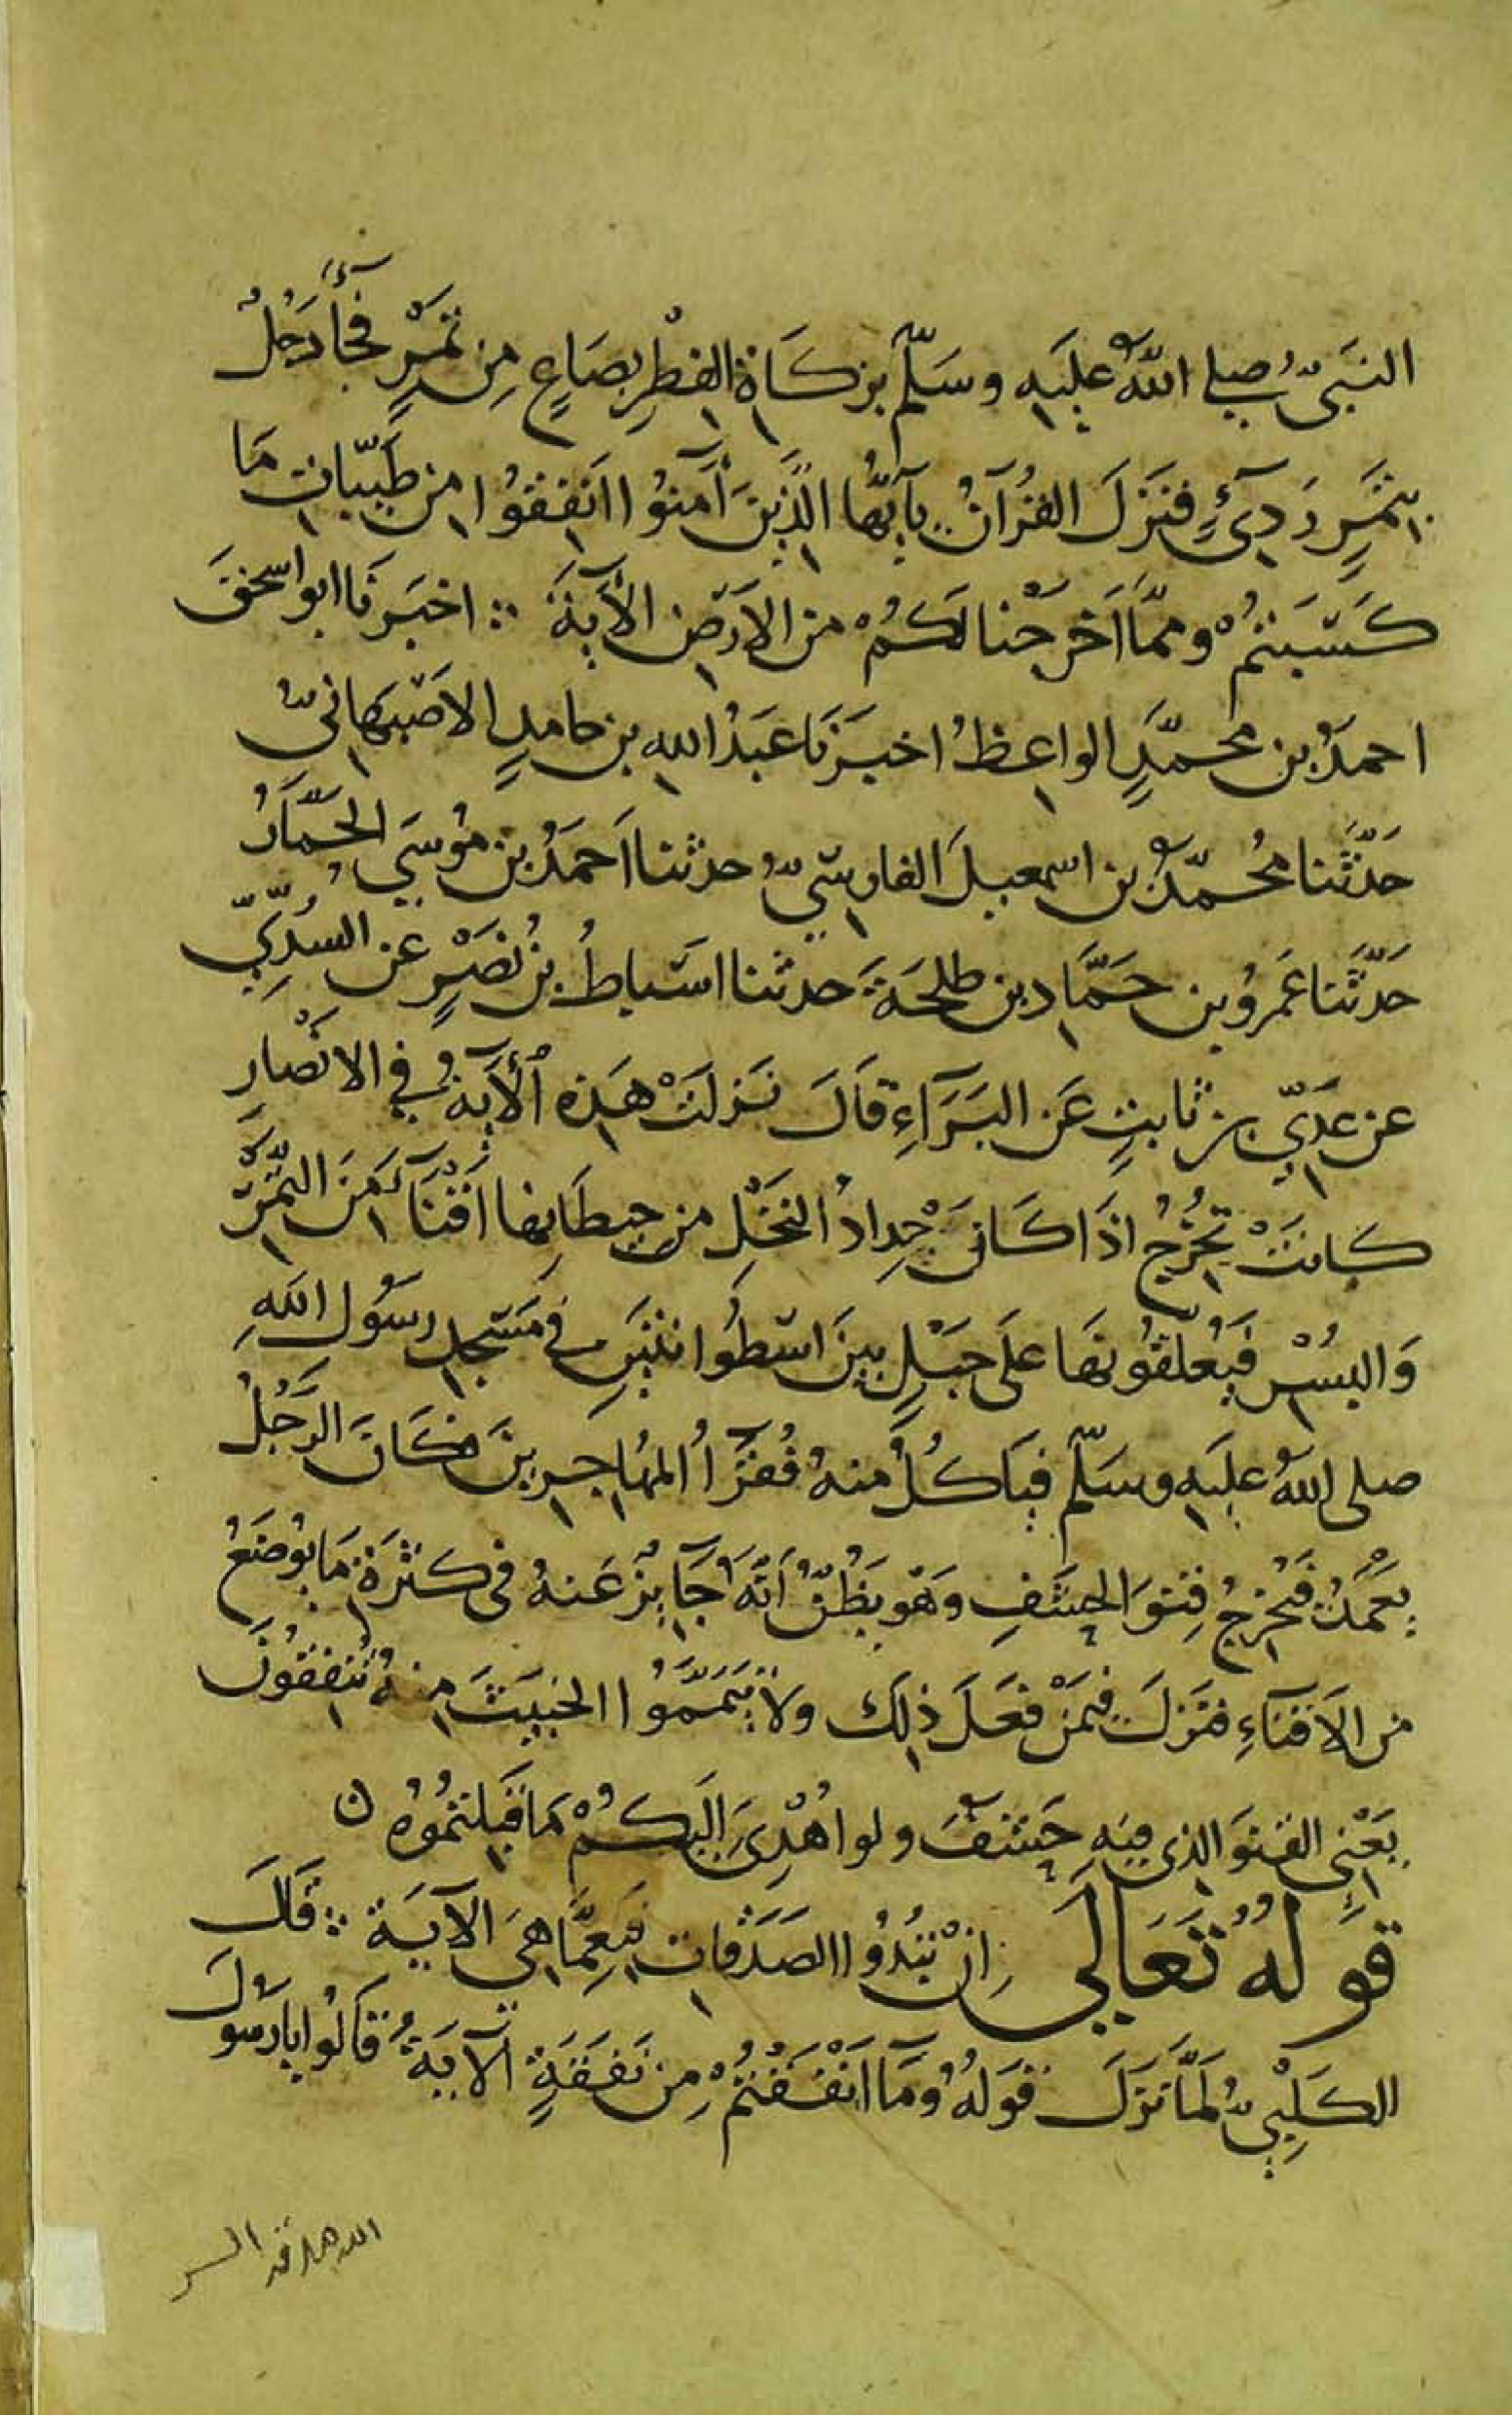 النَبيّ صلى اللهُ عليه وسَلّم بزكَاة الفطْرِ بصَاعٍ مِن تَمْرٍ فجَآءَ رَجُلٌ
بتَمرٍ رَدِىٍٔ فنَزلَ القُرآنُ يآيّها الّذينَ آمنُوا انفقوُا من طَيّبات مَا
كَسَبتمُْ وممّا اَخرَجْنا لَكمُْ من الارْض الآيةَ ∴ اخبَرنَا ابو اسحٰق
احمدُ بن محمّدٍ الواعظُ اخبَرنَا عَبدُ الله بن حامدٍ الاصْبهَانيّ
حَدّثنا مُحمّدُ بن اسمعيلَ الفارسِيّ حدثنا اَحمَدُ بن مُوسَى الجَمّازُ
حَدّثَنا عَمروُ بن حَمّاد بن طلحَةَ حدثنا اسْباطُ بنُ نصْرٍ عن السُدّيّ
عن عَدِيّ بن ثابتٍ عَن البَرَآءِ قاَلَ نَزلتْ هَذه الآيةُ في الانْصَارِ
كانتْ تخُرجُ اذَا كَانَ جِدادُ النخْلِ من حيطَانِها اَقْنَآءً مَنَ التّمْر
وَالبُسْر فيُعلّقوُنهَا عَلَى حَبْلٍ بينَ اسْطُوانتَينِ في مَسْجد رسوُل اللهِ
صلى اللهُ عليَه وسَلّم فيَاكلُ منهُ فُقرآءُ المهُاجرينَ وكَانَ الرّجُلُ
يعَمدُ فيُخرجُ قِنوَ الحشَفِ وَهوَ يظُنّ اَنّهُ جَآيزٌ عَنهُ فى كثرَة مَا يُوضَعُ
من الاَقنَآءِ فنزلَ فيمَنْ فعَلَ ذلك ولاَ تَيَمّمَُوا الخبيثَ منهُ تُنفقوُنَ
يَعْنِي القنْوَ الذي فيهِ حَشفٌ ولو اُهْدِىَ اليكمُْ مَا قَبلتمُوُهُ ن
قَولهُ تَعَالَى اِنْ تُبْدُوا الصَدَقات فنعِمّا هيَ الآيَة ∴ قَالَ
الكَلْبيّ لمّا نزَلَ قوَلهُ وَمَآ اَنْفَقتُمْ مِن نَفقَةٍ الآيةَ قاَلوُا يا رَسُولَ